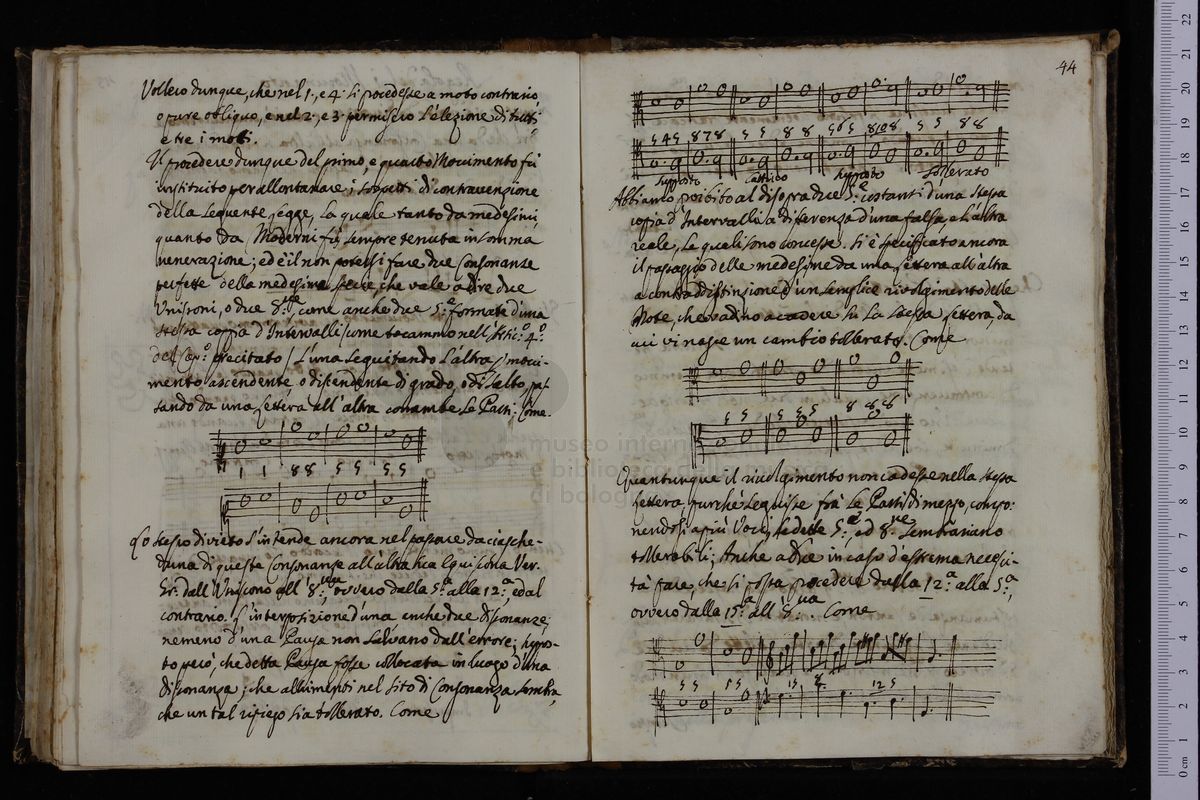 Vollero dunque, che nel 1., e 4. si procedesse a moto contrario,
o pure obliquo, e nel 2., e 3. permisero l'elezione di tutti
e tre i moti.
Il procedere dunque del primo, e quarto Movimento fù
instituito per allontanare i sospetti di contravenzione
della seguente Legge, la quale tanto da medesimi,
quanto da Moderni fù sempre tenuta in somma
venerazione; ed è il non potersi fare due Consonanze
perfette della medesima specie, che vale a dire due
Unisoni, o due 8.ve, come anche due 5.e formate d'una
stessa coppia d'Intervalli (come toccammo nell'Artic.o 4.o
del Cap.o precitato) l'una seguitando l'altra, p movi-
mento ascendente, o discendente di grado, o di salto, pas-
sando da una lettera all'altra coñambe le Parti: Come.
1 1 88 55 55
Lo stesso divieto s'intende ancora nel passare da ciasche-
duna di queste Consonanze all'altra sua Equisona Ver.
Gr: dall'Unisono all'8.va, ovvero dalla 5.a alla 12.a, ed al
contrario. L'interposizione d'una, anche due disonanze,
nemeno d'una Pausa non salvano dall'errore;
to però, che detta Pausa fosse collocata in luogo d'una
disonanza; che altrimenti nel sito di Consonanza sembra,
che un tal ripiego sia tollerato. Come
44
545 878 55 88 565 8108 55 88
supposto cattivo supposto tollerato
Abbiamo proibito al di sopra due 5.e costanti d'una stessa
copia d'Intervalli a differenza d'una falsa, e l'altra
reale, le quali sono concesse. Si è specificato ancora
il passaggio delle medesime da una lettera all'altra
a contraddistinzione d'un semplice rivolgimento delle
Note, che vadino a cadere sù la stessa lettera, da
cui vi nasce un cambio tollerato. Come
55 555 888
Quantunque il rivolgimento non cadesse nella stessa
lettera, purchè seguisse frà le Parti di mezzo, compo-
nendosi a più Voci, le dette 5.e, ed 8.ve sembrariano
tollerabili; Anche a dire in caso d'estrema necessi-
tà fare, che si possa procedere dalla 12.a alla 5.a,
ovvero dalla 15.a all'8.va. Come
55 55 15 8 12 5